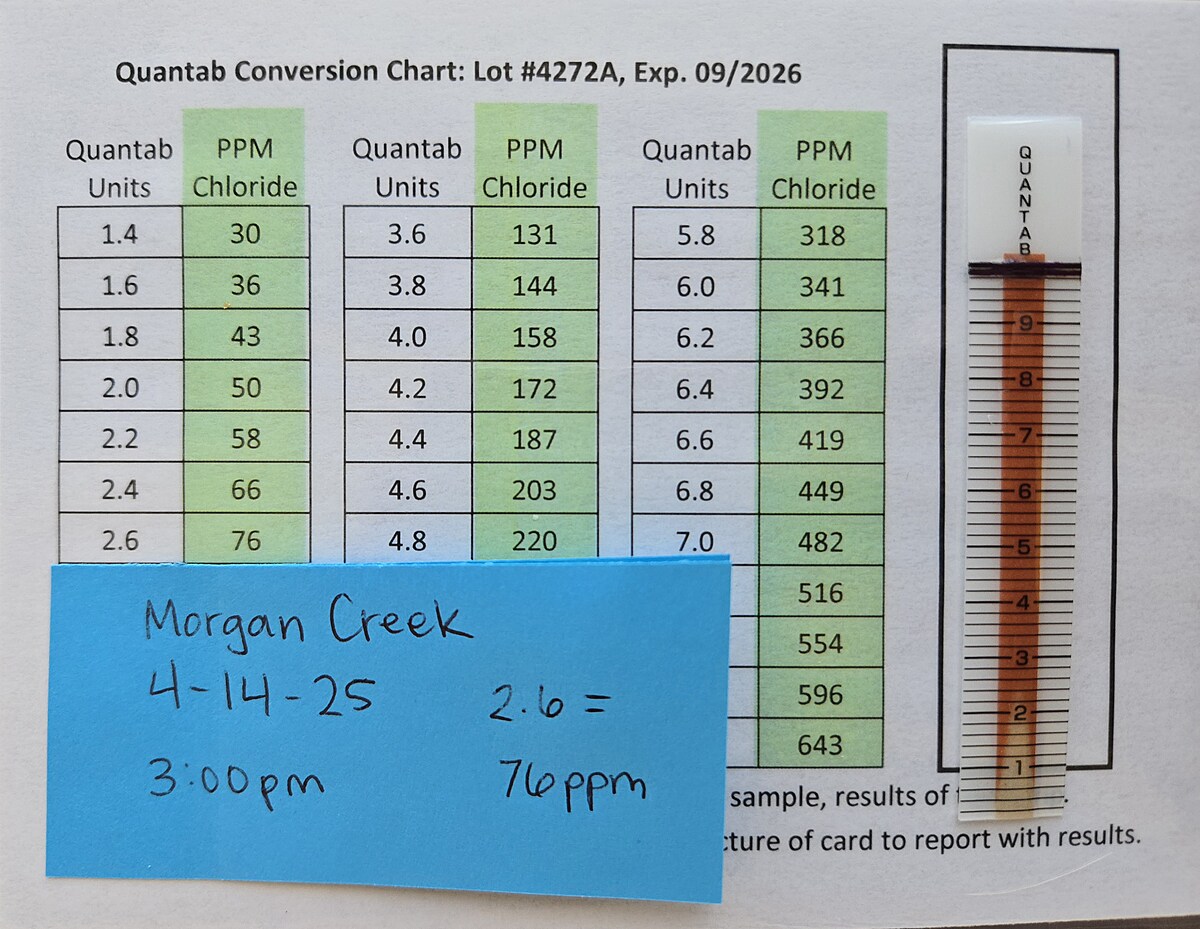 Quantab Conversion Chart: Lot #4272A, Exp. 09/2026
Quantab Units PPM Chloride
1.4 30
1.6 36
1.8 43
2.0 50
2.2 58
2.4 66
2.6 76
Quantab Units PPM Chloride
3.6 131
3.8 144
4.0 158
4.2 172
4.4 187
4.6 203
4.8 220
Quantab Units PPM Chloride
5.8 318
6.0 341
6.2 366
6.4 392
6.6 419
6.8 449
7.0 482
516
554
596
643
QUANTAB
9
8
7
6
5
4
3
2
1
Morgan Creek
4-14-25
3:00pm
2.6 =
76ppm
sample, results of
of card to report with results.